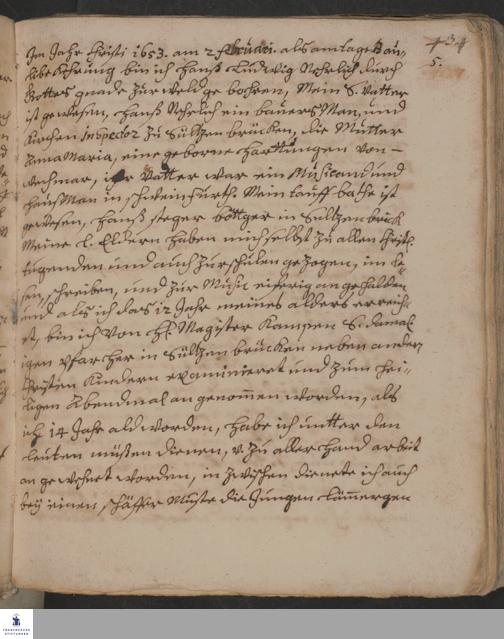 434
5.
Im Jahr Christi 1653. am 2 februari. als am tage Pau-
li bekehrung bin ich Hanß Ludwig Nehrlich durch
Gottes gnade zur weldge bohren, Mein S. Vatter
ist gewesen, Hanß Nehrlich ein bauers Man, und
Kirchen Inspector zu Sültzen brücken, die Mutter
Anna Maria, eine geborne Harttungen von
wechmar, ihr Vatter war ein Musicand und
Hauß Man in schweinfurth. Mein tauff bathe ist
gewesen, Hanß steger böttger in Sultzen brück
Meine l. Eldern haben mich selbst zu allen Christl.
tugenden und auch zur schulen gezogen, im le-
sen, schreiben, und zur Music eiferig an gehalden
und als ich das 12 Jahr meines alders erreich-
et, bin ich von H. Magister Kampen S. damal
igen pfarrher in Sültzen brücken neben andern
Christen Kindern examinieret und zum hei-
ligen Abendmal an genommen worden, als
ich 14 Jahr ald worden, habe ich untter den
leuten müßen dienen, u. zu aller hand arbeit
an gewehnet worden, in zwischen dienete ich auch
bey einen schäffer Muste die Jungen lämmergen
FRANCKESCHE
STIFTUNGEN